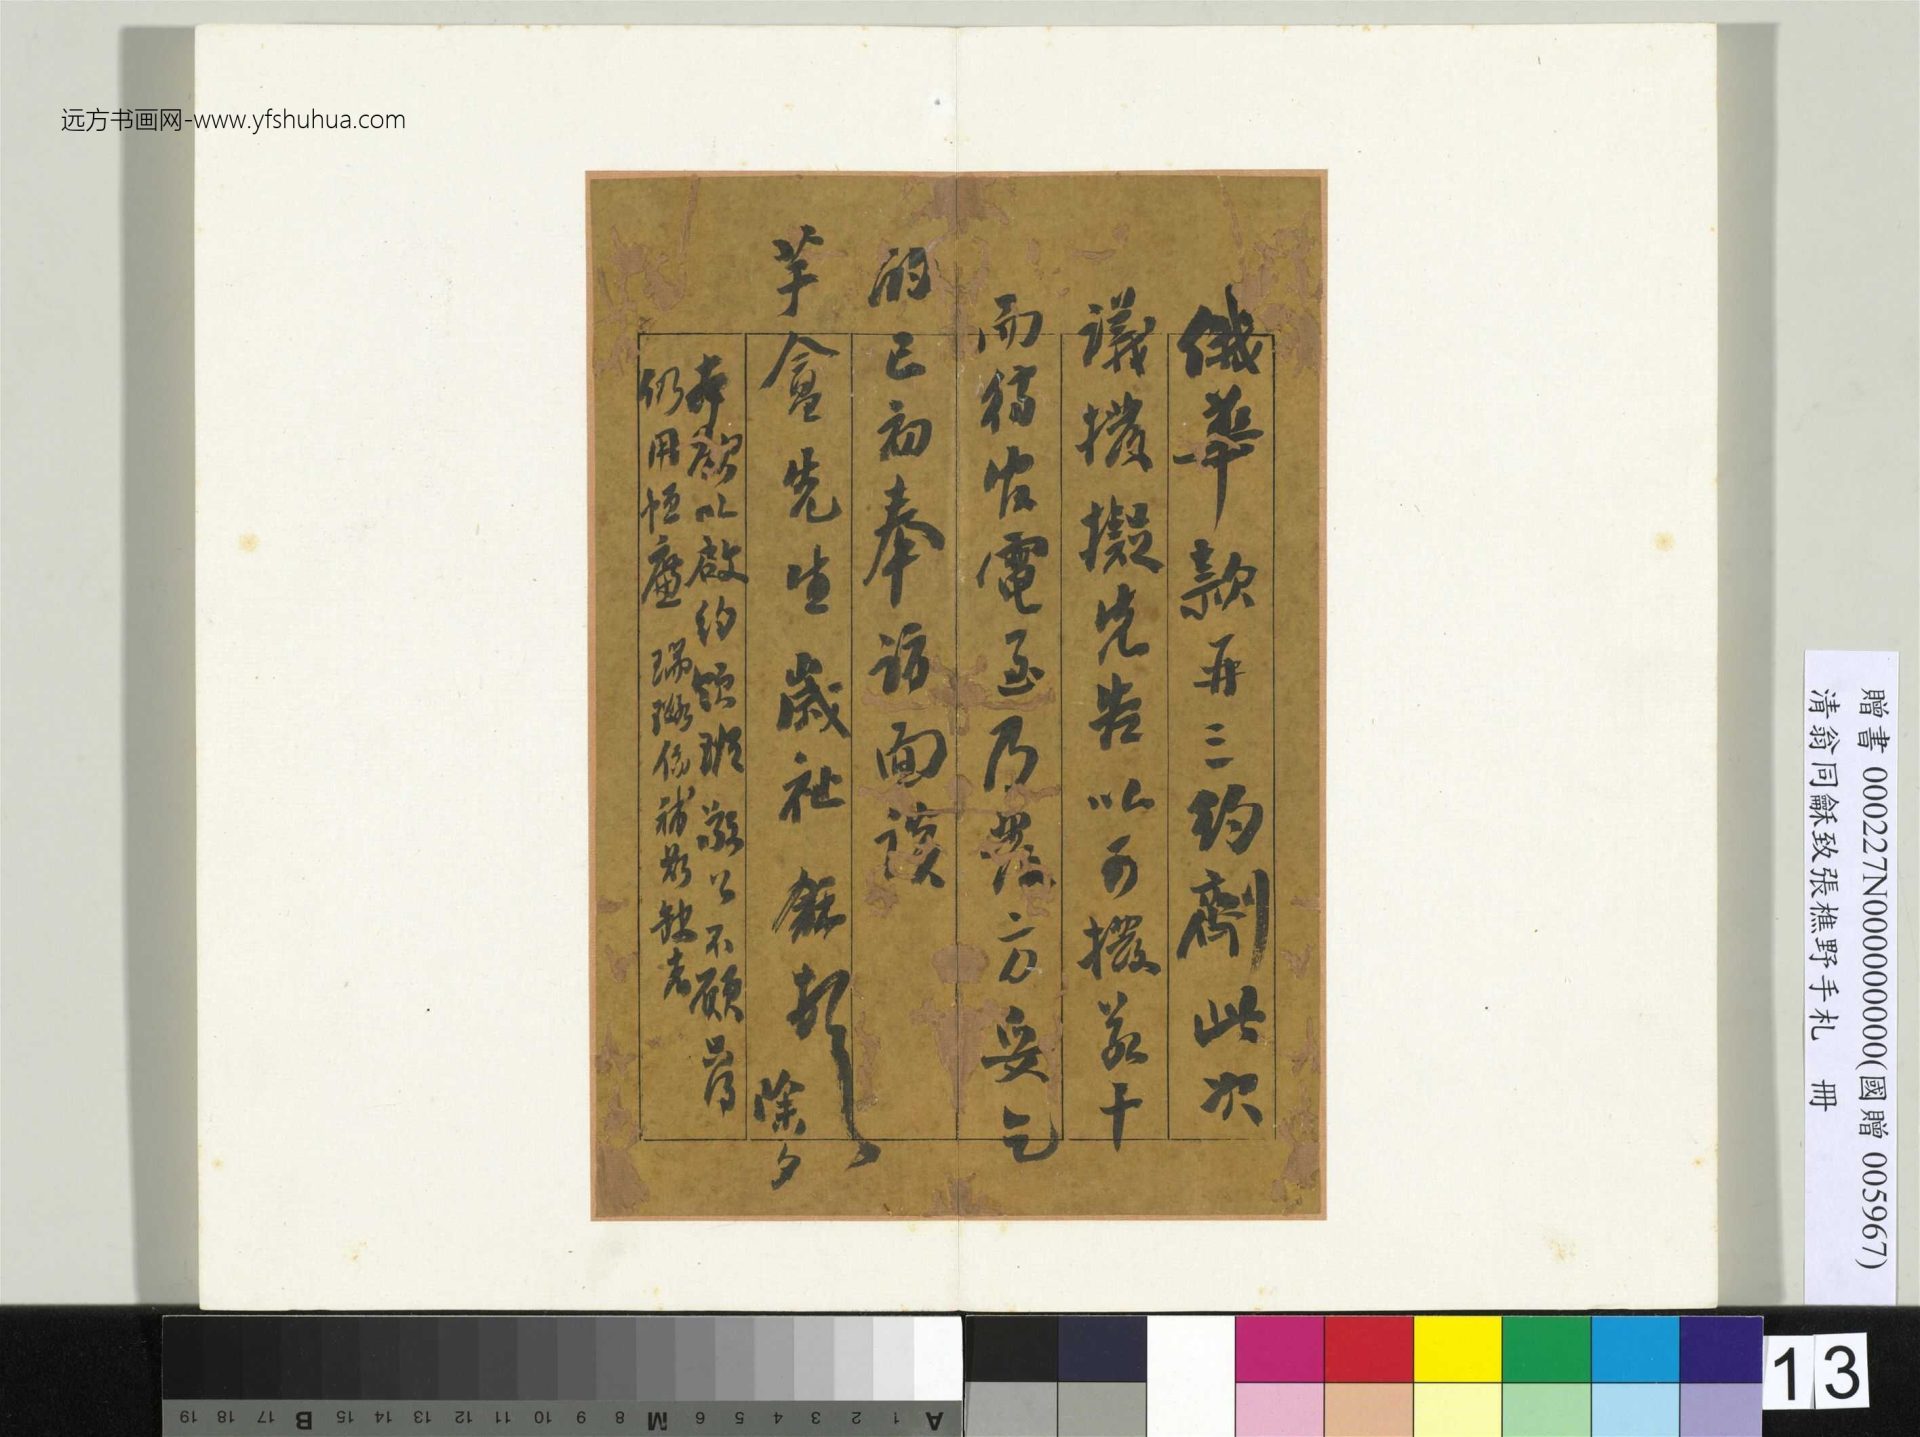 远方书画网-www.yfshuhua.com
俄華款再三約劑此次
議撥擬先告以可撥若干
而稿官電至乃發方妥乞
酌已初奉訪面談
芋盦先生歲祉 龢頓 除夕
奉 以啟約領班 公不願 落
仍用恒 瑞璐係補 缺者
贈書 000227N000000000(國贈 005967)
清翁同龢致張樵野手札 冊
13
A 1 2 3 4 5 6 M 8 9 10 11 12 13 14 15 B 17 18 19